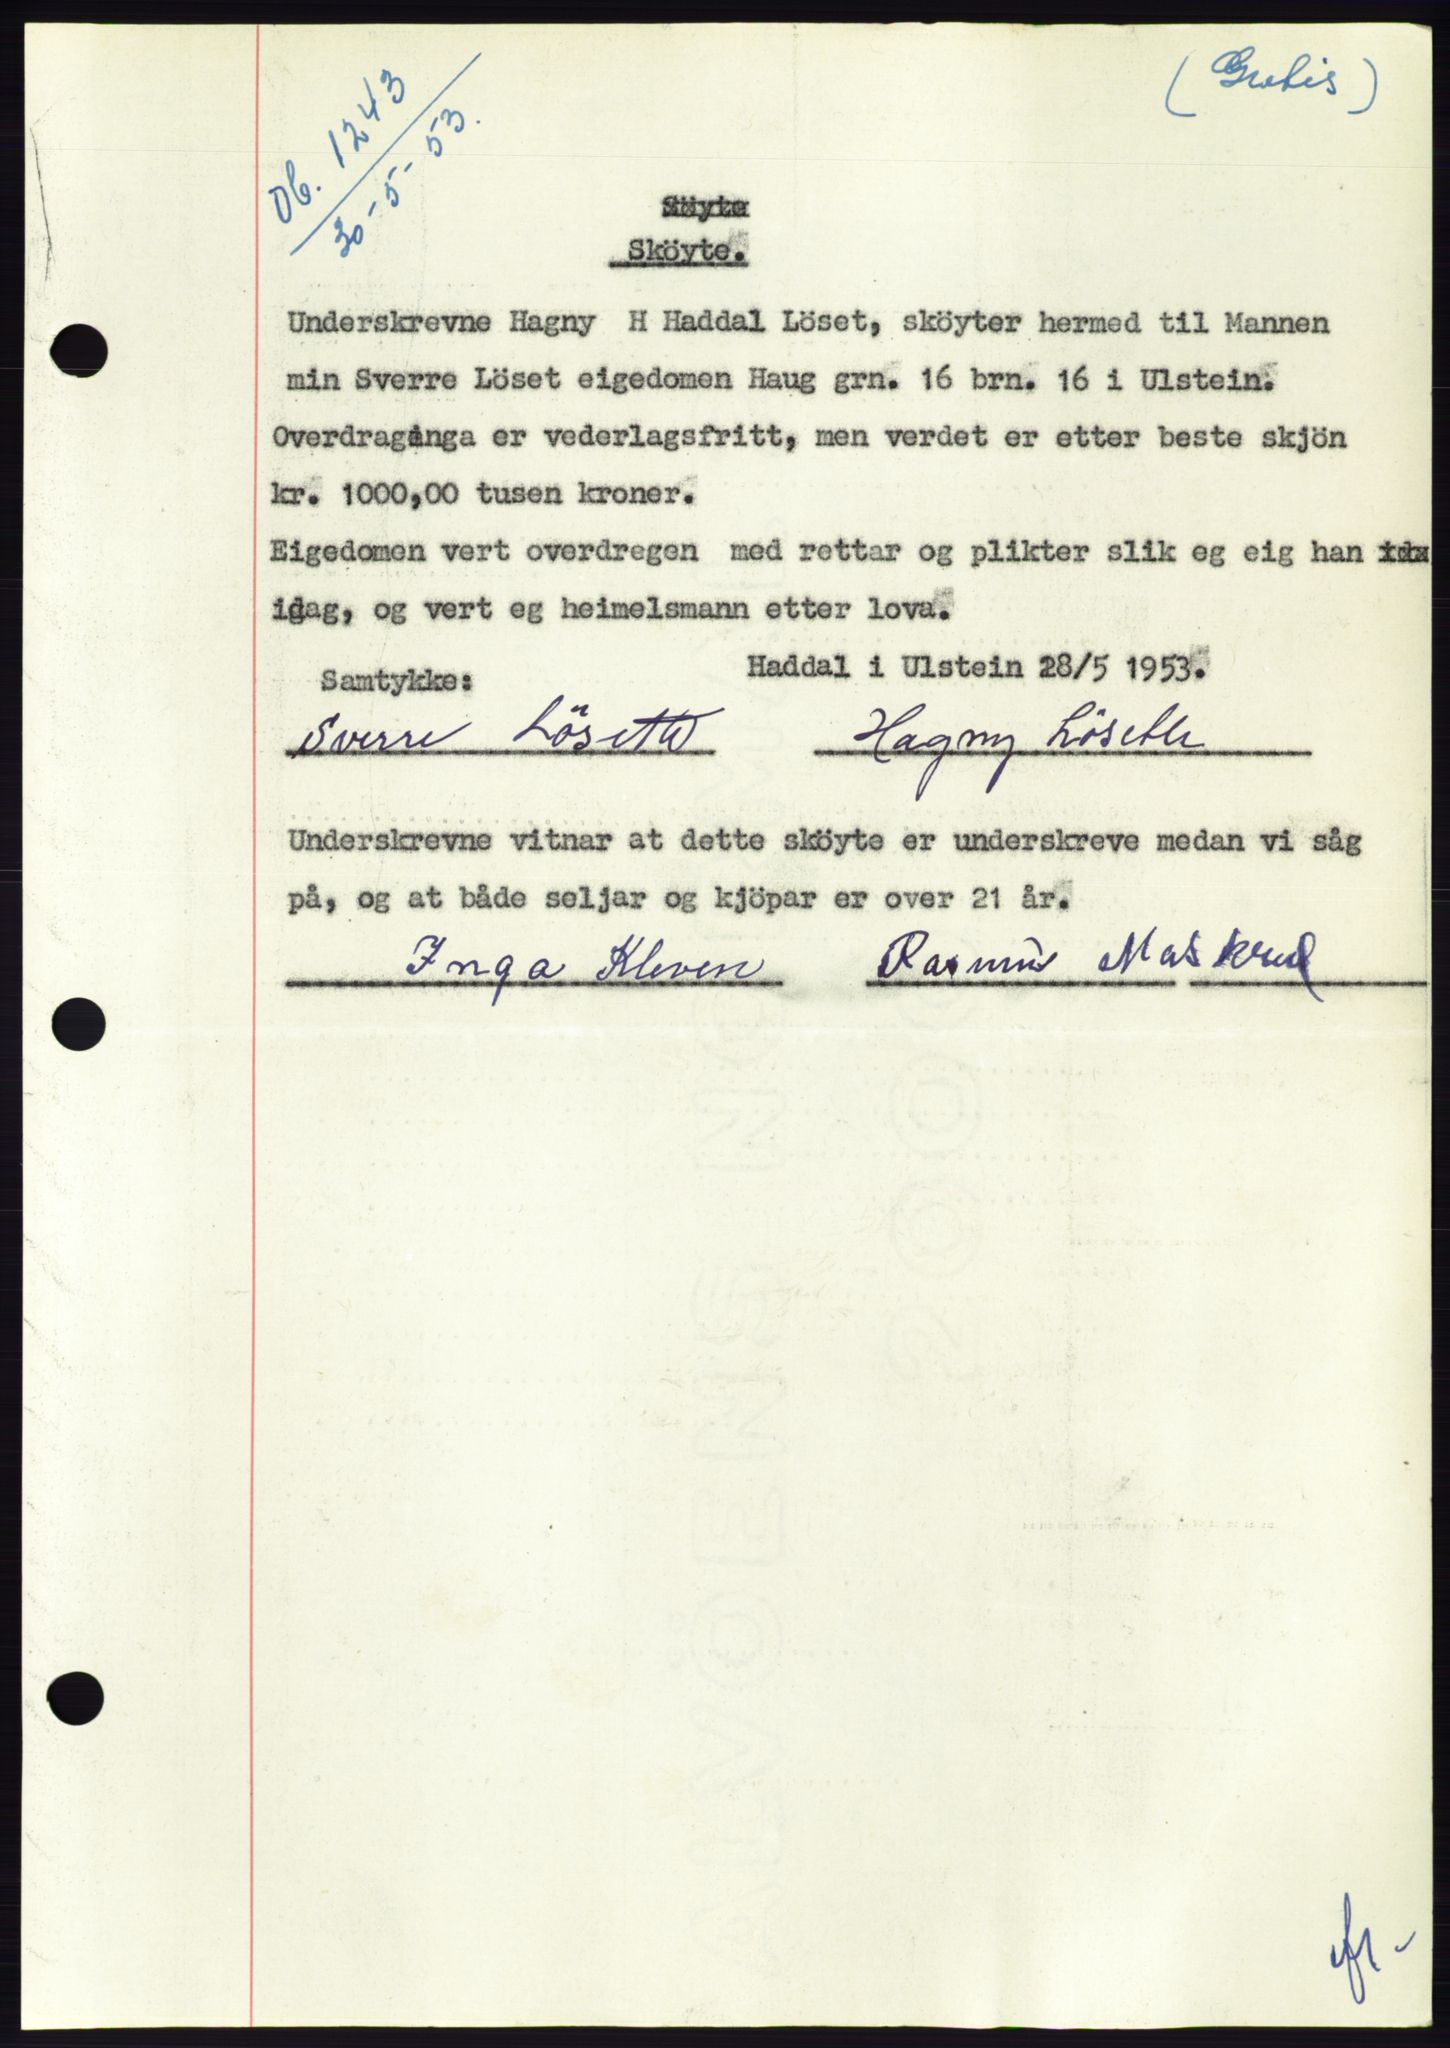 Db. 1243
30-5-53.
(Gratis)
Sköyte.
Underskrevne Hagny H Haddal Löset, sköyter hermed til Mannen
min Sverre Löset eigedomen Haug grn. 16 brn. 16 i Ulstein.
Overdragånga er vederlagsfritt, men verdet er etter beste skjön
kr. 1000,00 tusen kroner.
Eigedomen vert overdregen med rettar og plikter slik eg eig han
idag, og vert eg heimelsmann etter lova.
Haddal i Ulstein 28/5 1953.
Samtykke:
Sverre Lösette Hagny Lösette
Underskrevne vitnar at dette sköyte er underskreve medan vi såg
på, og at både seljar og kjöpar er over 21 år.
Inga Kleven Rasmus